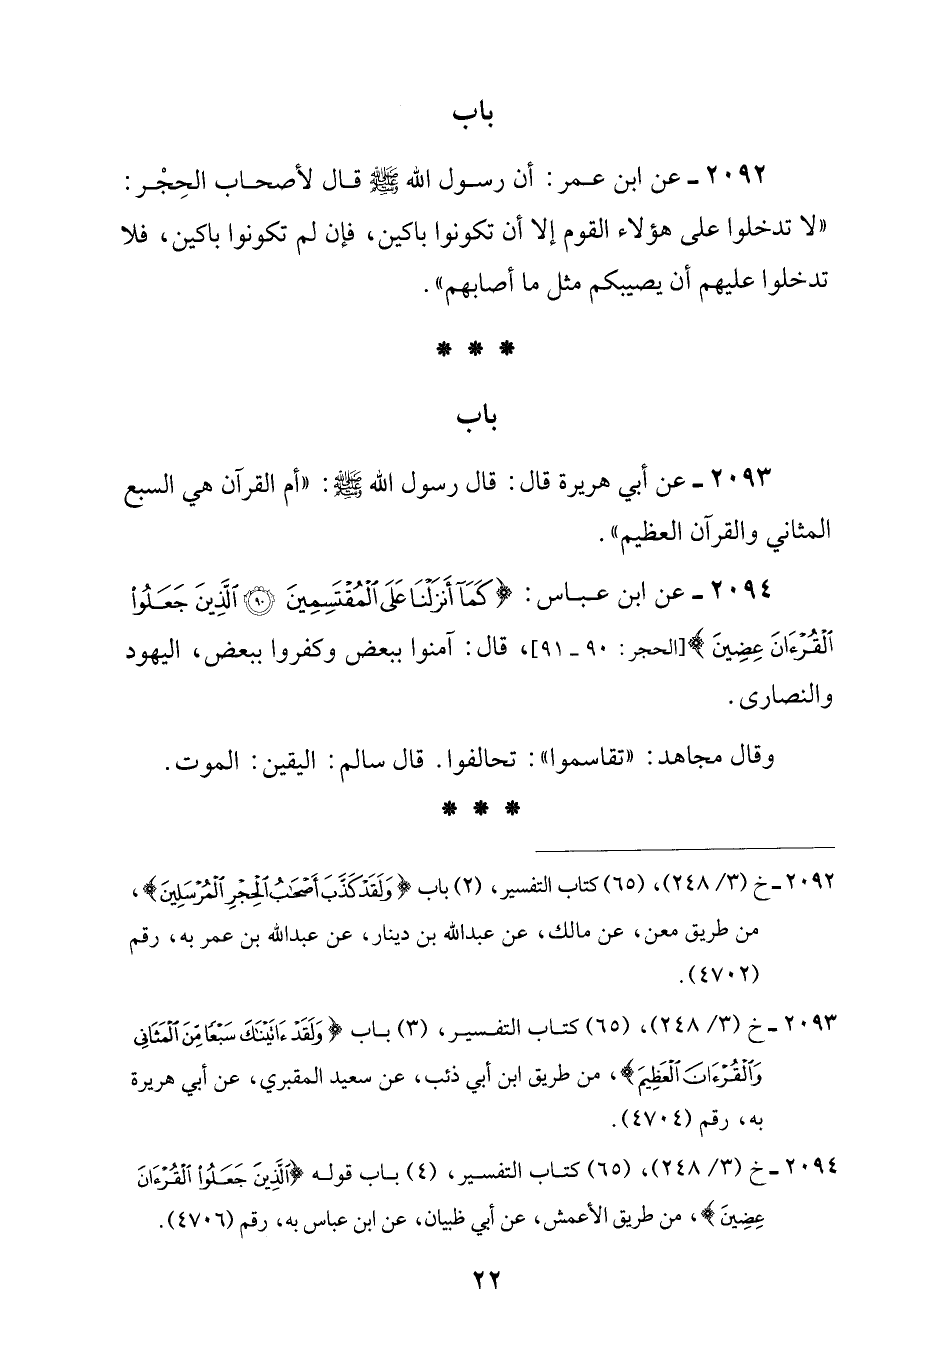 باب
٢٠٩٢ ـ عن ابن عـمر: أن رسـول الله ﷺ قـال لأصحـاب الحِجْـر:
«لا تدخلوا على هؤلاء القوم إلا أن تكونوا باكين، فإن لم تكونوا باكين، فلا
تدخلوا عليهم أن يصيبكم مثل ما أصابهم».
* * *
باب
٢٠٩٣ ـ عن أبي هريرة قال: قال رسول الله ﷺ: «أم القرآن هي السبع
المثاني والقرآن العظيم».
٢٠٩٤ ـ عن ابن عبـاس: ﴿كَمَآ أَنزَلْنَا عَلَى ٱلْمُقْتَسِمِينَ ۝٩٠ ٱلَّذِينَ جَعَلُوا۟
ٱلْقُرْءَانَ عِضِينَ﴾ [الحجر: ٩٠ ـ ٩١]، قال: آمنوا ببعض وكفروا ببعض، اليهود
والنصارى.
وقال مجاهد: «تقاسموا»: تحالفوا. قال سالم: اليقين: الموت.
* * *
٢٠٩٢ ـ خ (٣/ ٢٤٨)، (٦٥) كتاب التفسير، (٢) باب ﴿وَلَقَدْ كَذَّبَ أَصْحَٰبُ ٱلْحِجْرِ ٱلْمُرْسَلِينَ﴾،
من طريق معن، عن مالك، عن عبدالله بن دينار، عن عبدالله بن عمر به، رقم
(٤٧٠٢).
٢٠٩٣ ـ خ (٣/ ٢٤٨)، (٦٥) كتـاب التفـسير، (٣) بـاب ﴿وَلَقَدْ ءَاتَيْنَٰكَ سَبْعًا مِّنَ ٱلْمَثَانِى
وَٱلْقُرْءَانَ ٱلْعَظِيمَ﴾، من طريق ابن أبي ذئب، عن سعيد المقبري، عن أبي هريرة
به، رقم (٤٧٠٤).
٢٠٩٤ ـ خ (٣/ ٢٤٨)، (٦٥) كتـاب التفـسير، (٤) بـاب قولـه ﴿ٱلَّذِينَ جَعَلُوا۟ ٱلْقُرْءَانَ
عِضِينَ﴾، من طريق الأعمش، عن أبي ظبيان، عن ابن عباس به، رقم (٤٧٠٦).
٢٢